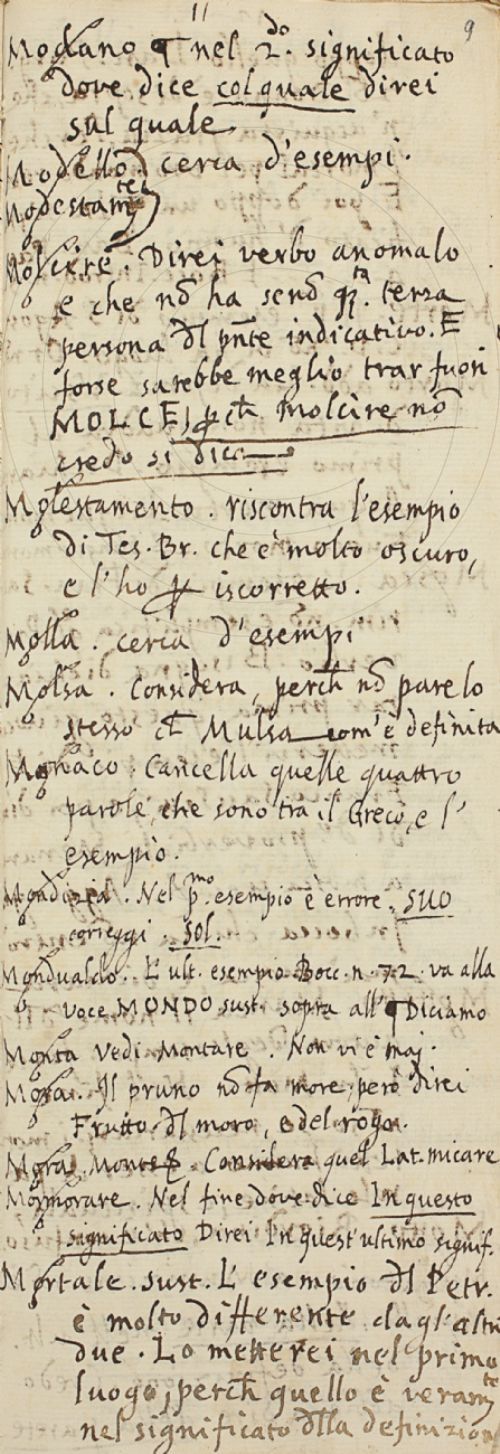 11
9
Modano ¶ nel 2.do significato
dove dice col quale direi
sul quale.
Modello cerca d'esempi.
Modestamte
Molcire. Direi verbo anomalo
e che nō ha senō q.ta terza
persona dl pnte indicativo. E
forse sarebbe meglio trar fuori
MOLCE, pch Molcire nō
credo si dica
Molestamento. riscontra l'esempio
di Tes. Br. che è molto oscuro,
e l'ho p iscorretto.
Molla. cerca d'esempi
Molsa. Considera, perch nō pare lo
stesso ch Mulsa com'è definita
Monaco. Cancella quelle quattro
parole, che sono tra il Greco, e l'
esempio.
Mondizia. Nel p.mo esempio è errore. SUO
correggi. SOL.
Mondualdo. L'ult. esempio Bocc. n. 72. va alla
voce MONDO sust. sopra all' ¶ Diciamo
Monta vedi Montare. Non vi è maj.
Mora. Il pruno nō fa more, però direi
Frutto dl moro, e del rogo.
Mora. Monte. Considera quel Lat. micare
Mormorare. Nel fine, dove dice In questo
significato Direi In quest'ultimo signif.
Mortale. sust. L'esempio dl Petr.
è molto differente dagl'altri
due. Lo metterei nel primo
luogo, perch quello è veramte
nel significato dlla definizione